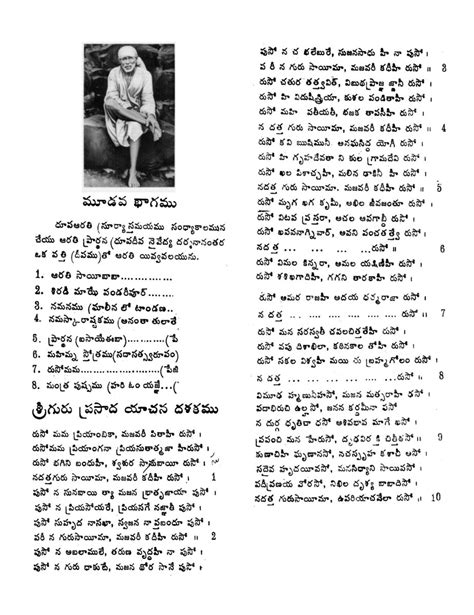 మూడవ భాగము
దూపఆరతి (సూర్యాస్తమయము సంధ్యాకాలమున
చేయు ఆరతి ప్రార్థన (దూపదీప నైవేద్య దర్శనానంతర
ఒక వత్తి (దీపము)తో ఆరతి యివ్వవలయును.
1. ఆరతి సాయిబాబా..............
2. శిరడి మాఝే పండరీపూర్........
3. నమనము (మాలీన లో టాండణ..
4. నమస్కారాష్టకము (అనంతా తులాతే
5. ప్రార్థన (ఐసాయేఈబా)...........(పే
6. మహిమ్న స్తోత్రము(సదాసత్స్వరూపం)
7. రుసోమమ......................(పేజి
8. మంత్ర పుష్పము (హరి ఓం యజ్ఞే...(
శ్రీగురు ప్రసాద యాచన దశకము
రుసో మమ ప్రియాంబికా, మజవరీ పితాహీ రుసో ।
రుసోమమ ప్రియాంగనా ప్రియసుతాత్మజా హీరుసో ।
రుసో భగిని బందుహీ, శ్వశుర సాసుబాయీ రుసో ।
నదత్తగురు సాయిమా, మజవరీ కదీహీ రుసో । 1
పుసో న సునబాయి త్యా మజన భ్రాతృజాయా పుసో ।
పుసో న ప్రియసోయరే, ప్రియసగే నజ్ఞాతీ పుసో ।
పుసో సుహృద నాసఖా, స్వజన నాప్తబందూ పుసో ।
పరీ న గురుసాయిమా, మజవరీ కదీహీ రుసో ॥ 2
పుసో న అబలాములే, తరుణ వృద్ధహీ నా పుసో ।
పుసో న గురు ధాకుటే, మజన థోర సానే పుసో ।
పుసో న చ భలేబురే, సుజనసాదు హీ నా పుసో ।
పరీ న గురు సాయీమా, మజవరీ కదీహీ రుసో ॥ 3
రుసో చతుర తత్త్వవిత్, విబుధప్రాజ్ఞ జ్ఞానీ రుసో ।
రుసో హి విదుషీస్త్రియా, కుశల పండితాహీ రుసో ।
రుసో మహి పతీయతీ, భజక తాపసీహీ రుసో ।
న దత్త గురు సాయీమా, మజవరీ కదీహీ రుసో ॥ 4
రుసో కవి ఋషిమునీ, అనఘసిద్ధ యోగీ రుసో ।
రుసో హి గృహదేవతా ని కుల గ్రామదేవి రుసో ।
రుసో ఖల పిశాచ్చహీ, మలీన డాకినీ హీ రుసో ।
నదత్త గురు సాయిమా, మజవరీ కదీహీ రుసో ॥ 5
రుసో మృగ ఖగ కృమీ, అఖిల జీవజంతూ రుసో ।
రుసో విటప ప్రస్తరా, అచల ఆపగాబ్దీ రుసో ।
రుసో ఖపవనాగ్నివార్, అవని పంచతత్త్వే రుసో ।
న దత్త ... ... ... ... రుసో ॥ 6
రుసో విమల కిన్నరా, అమల యక్షిణీహీ రుసో ।
రుసో శశిఖగాదిహీ, గగని తారకాహీ రుసో ।
రుసో అమర రాజహీ అదయ ధర్మరాజా రుసో ।
న దత్త ... ... ... ... ... రుసో ॥ 7
రుసో మన సరస్వతీ చపలచిత్తతేహీ రుసో ।
రుసో వపు దిశాఖిలా, కఠినకాల తోహీ రుసో ।
రుసో సకల విశ్వహీ మయి తు బ్రహ్మగోలం రుసో ।
న దత్త ... ... ... ... రుసో ॥ 8
విమూఢ హ్మణునీహసో, మజన మత్సరాహీ డసో ।
పదాభిరుచి ఉల్హసో, జనన కర్దమీనా ఫసో
న దుర్గ ధృతిచా ధసో అశివభావ మాగే ఖసో ।
ప్రపంచి మన హేరుసో, దృఢవిరక్తి చిత్తీఠసో ॥ 9
కుణాచిహీ ఘృణానసో, నచస్పృహ కశాచీ అసో ।
సదైవ హృదయీవసో, మనసిధ్యాని సాయివసో ।
పదీప్రణయ వోరసో, నిఖిల దృశ్య బాబాదిసో ।
నదత్త గురుసాయిమా, ఉపరియాచవేలా రుసో ॥ 10